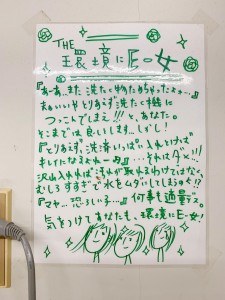 THE
環境にE・女
『あーあ、また洗たく物ためちゃったぁ…
まぁいいや とりあえず 洗たく機に
つっこんでしまえ!!! と、あなた。
そこまでは良いとします…しかし!
『とりあえず、洗済いっぱい入れとけば
キレイになるよねー♪』…それはダメ!!!
沢山入れれば汚れが取れるわけではなく、
むしろすすぎで水をムダにしてしまうぞ!?
『マヤ…恐ろしい子…』何事も適量デス。
気をつけてあなたも、環境にE・女!